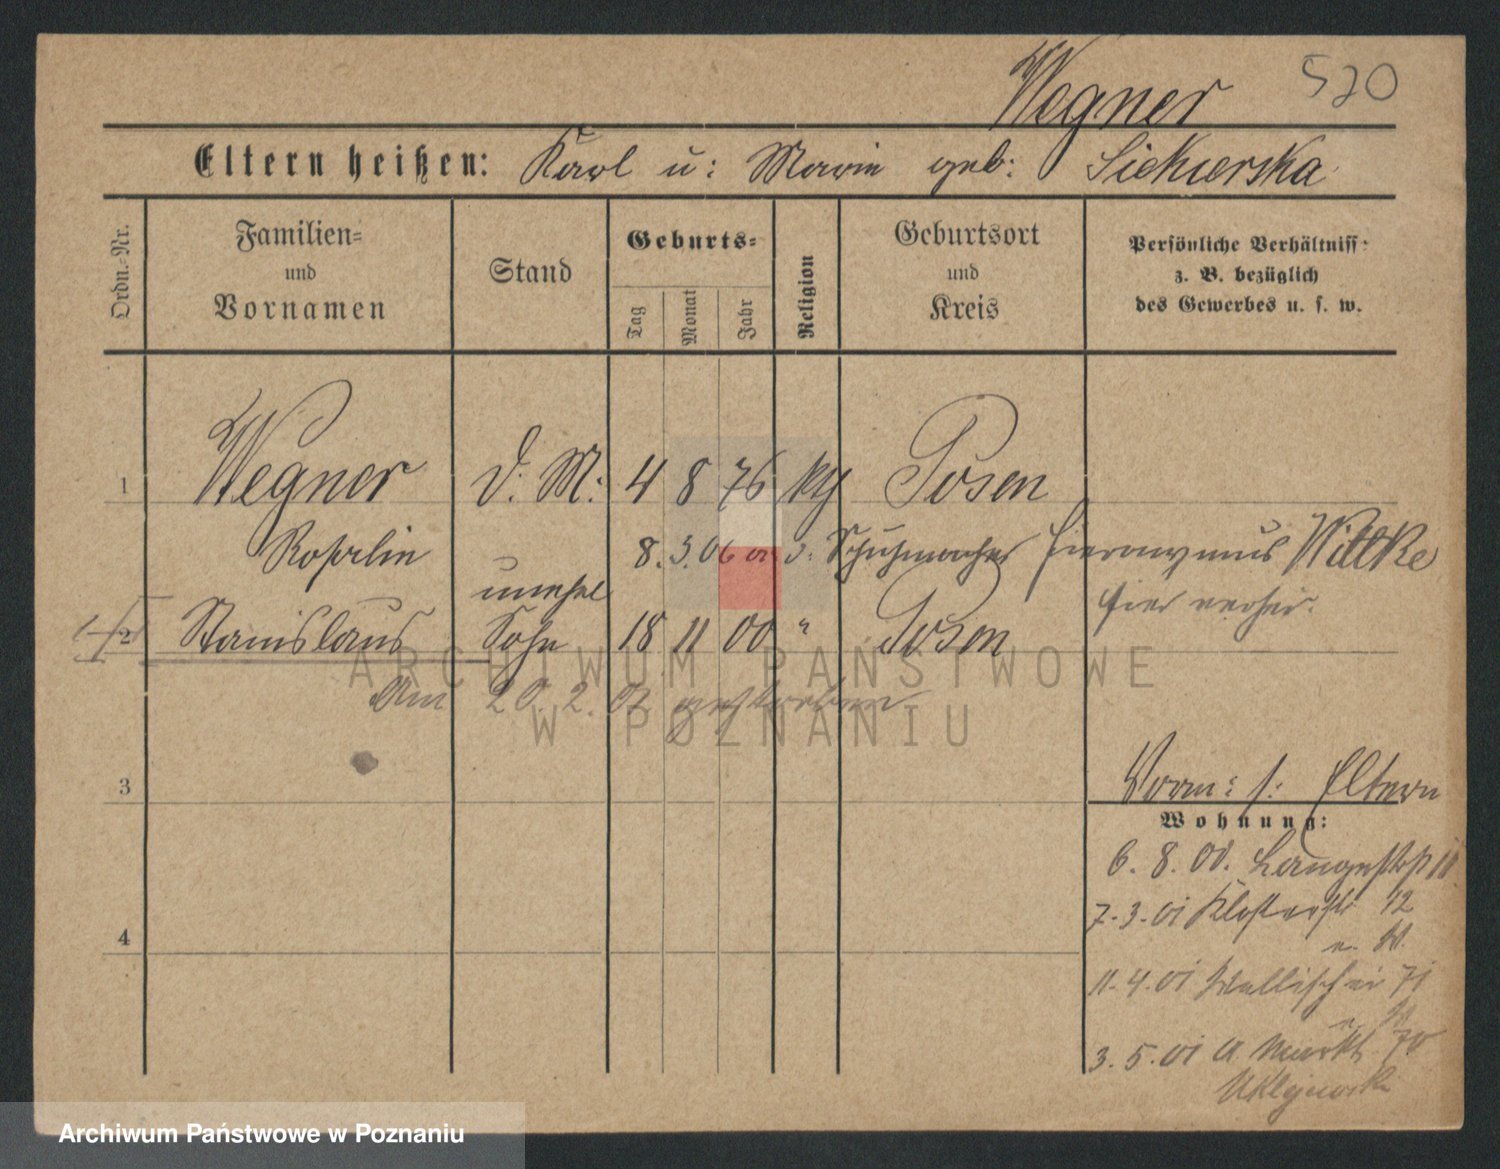 Wegner 520
Eltern heißen: Karl u: Marie geb: Siekierska
Ordn.-Nr.
Familien-
und
Vornamen
Stand
Geburts-
Tag
Monat
Jahr
Religion
Geburtsort
und
Kreis
Persönliche Verhältniss:
z. B. bezüglich
des Gewerbes u. s. w.
1 Wegner d. M: 4 8 76 kth Posen
8. 3. 06 an d: Schuhmacher Hieronymus Wittke
hier verheir.
unehel
2 Stanislaus Sohn 18 11 00 " Posen
Am 20. 2. 02 gestorben
3
4
Vorm: s: Eltern
Wohnung:
6. 8. 00. Langestr
7. 3. 01 Klosterstr 12
11. 4. 01 Wallischei 71
3. 5. 01 A. Markt 70
ARCHIWUM PAŃSTWOWE
W POZNANIU
Archiwum Państwowe w Poznaniu